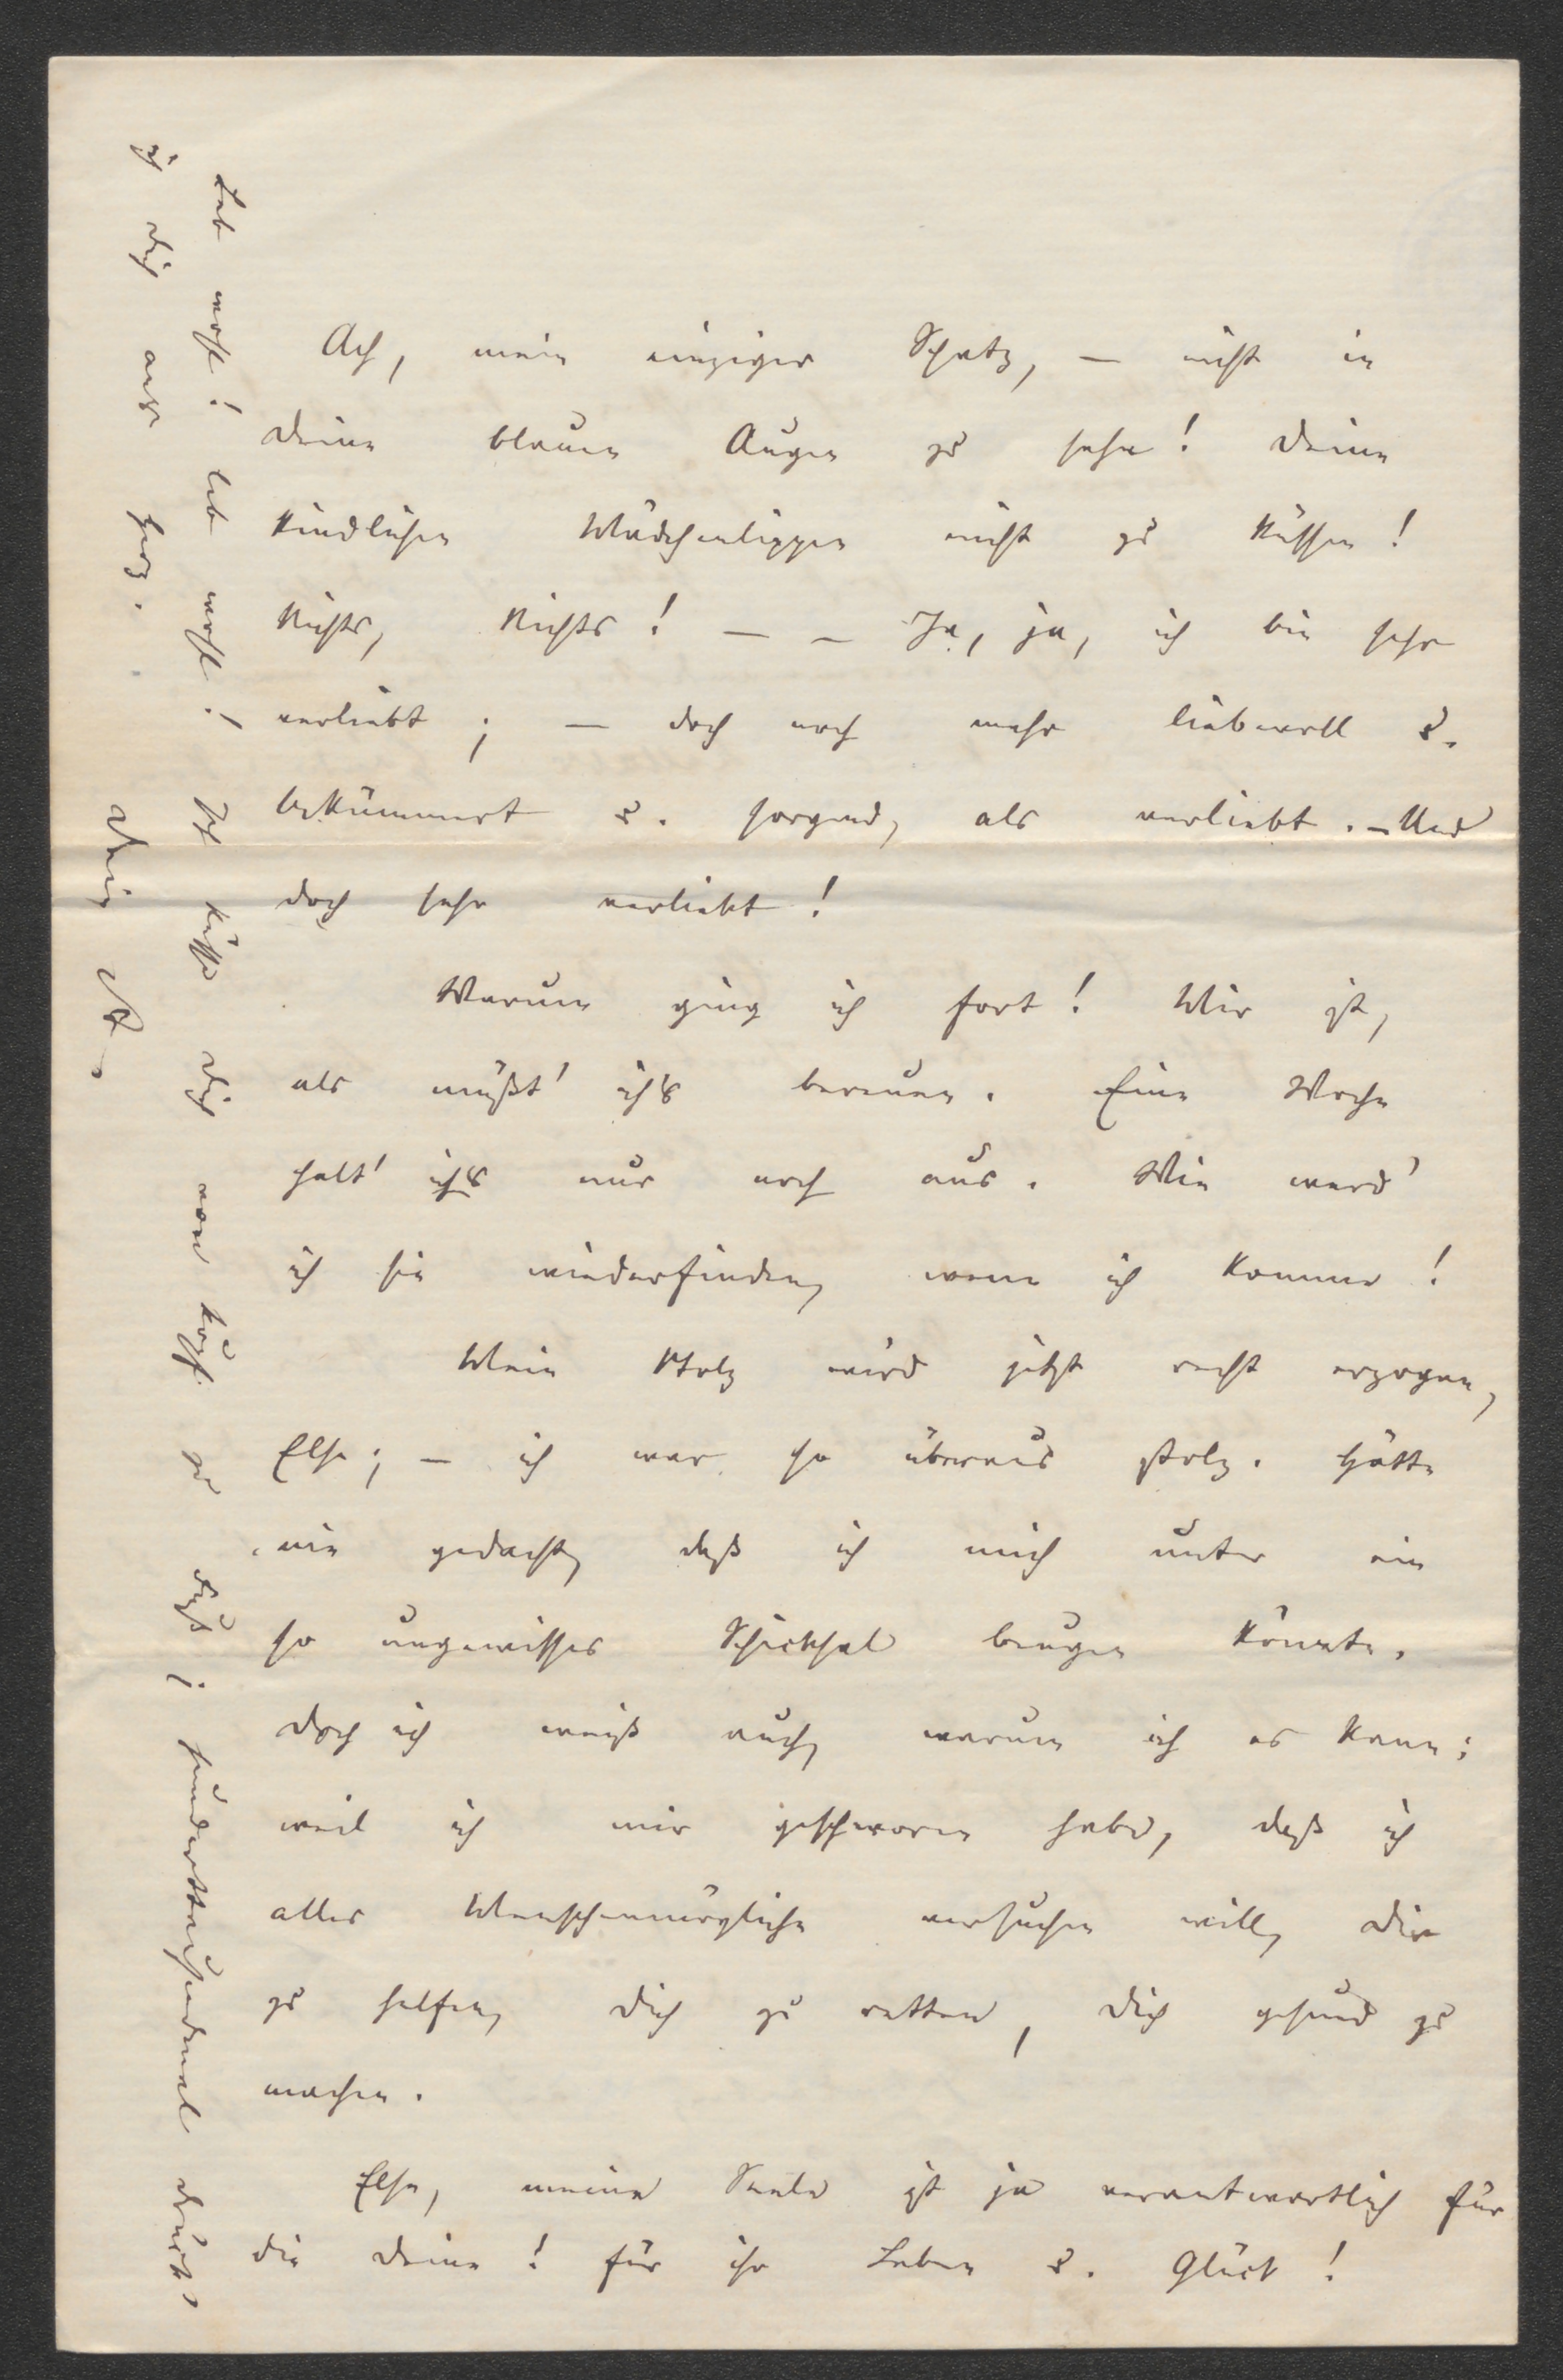 Ach, mein einziger Schatz, — nicht in
Deine blauen Augen zu sehn! Deine
kindlichen Mädchenlippen nicht zu küssen!
Nichts, Nichts! — — Ja, ja, ich bin sehr
verliebt; — doch noch mehr liebevoll u.
bekümmert u. sorgend, als verliebt. — Und
doch sehr verliebt!
Warum ging ich fort! Mir ist,
als müßt' ich's bereuen. Eine Woche
halt' ich's nur noch aus. Wie werd'
ich sie wiederfinden, wenn ich komme!
Mein Stolz wird jetzt recht erzogen,
Else; — ich war so überaus stolz. Hätte
nie gedacht, daß ich mich unter ein
so ungewisses Schicksal beugen könnte.
Doch ich weiß auch, warum ich es kann:
weil ich mir geschworen habe, daß ich
alles Menschenmögliche versuchen will, Dir
zu helfen, Dich zu retten, Dich gesund zu
machen.
Else, meine Seele ist ja verantwortlich für
die Deine! für ihr Leben u. Glück!
Leb wohl! leb wohl! Ich küsse Dich von Kopf zu Fuß; hunderttausendmal drück'
ich Dich ans Herz.
Dein A.